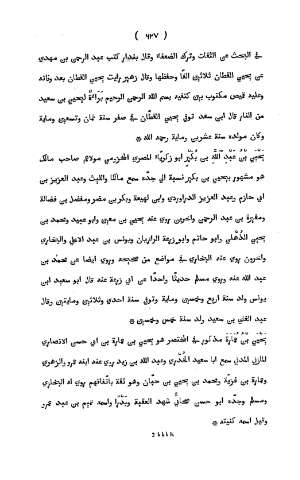 ( ٦٢٧ )
في البحث عن الثقات وترك الضعفاء وقال بندار كتب عبد الرحمن بن مهدي
عن يحيى القطان ثلاثين الفا وحفظها وقال زهير رايت يحيى القطان بعد وفاته
وعليه قميص مكتوب بين كتفيه بسم الله الرحمن الرحيم براءة ليحيى بن سعيد
من النار قال ابن سعد توفي يحيى القطان في صفر سنة ثمان وتسعين وماية
وكان مولده سنة عشرين وماية رحمه الله *
يحيى بن عبد الله بن بكير ابو زكرياء المصري المخزومي مولاهم صاحب مالك
هو مشهور بيحيى بن بكير نسبة الى جده سمع مالكا والليث وعبد العزيز بن
ابي حازم وعبد العزيز الدراوردي وابن لهيعة وبكر بن مضر ومفضل بن فضالة
ومغيرة بن عبد الرحمن واخرين روى عنه يحيى بن معين وابو عبيد ومحمد بن
يحيى الذهلي وابو حاتم وابو زرعة الرازيان ويونس بن عبد الاعلى والبخاري
واخرون روى عنه البخاري في مواضع من صحيحه وروى ايضا عن محمد بن
عبد الله عنه وروى مسلم حديثا واحدا عن ابي زرعة عنه قال ابو سعيد ابن
يونس ولد سنة اربع وخمسين وماية وتوفي سنة احدى وثلاثين ومايتين وقال
عبد الغني بن سعيد ولد سنة خمس وخمسين *
يحيى بن عمارة مذكور في المختصر هو يحيى بن عمارة بن ابي حسن الانصاري
المازني المدني سمع ابا سعيد الخدري وعبد الله بن زيد روى عنه ابنه عمرو والزهري
وعمارة بن غزية ومحمد بن يحيى بن حبان وهو ثقة باتفاقهم روى له البخاري
ومسلم وجده ابو حسن صحابي شهد العقبة وبدرا واسمه تميم بن عبد عمرو
وقيل اسمه كنيته *